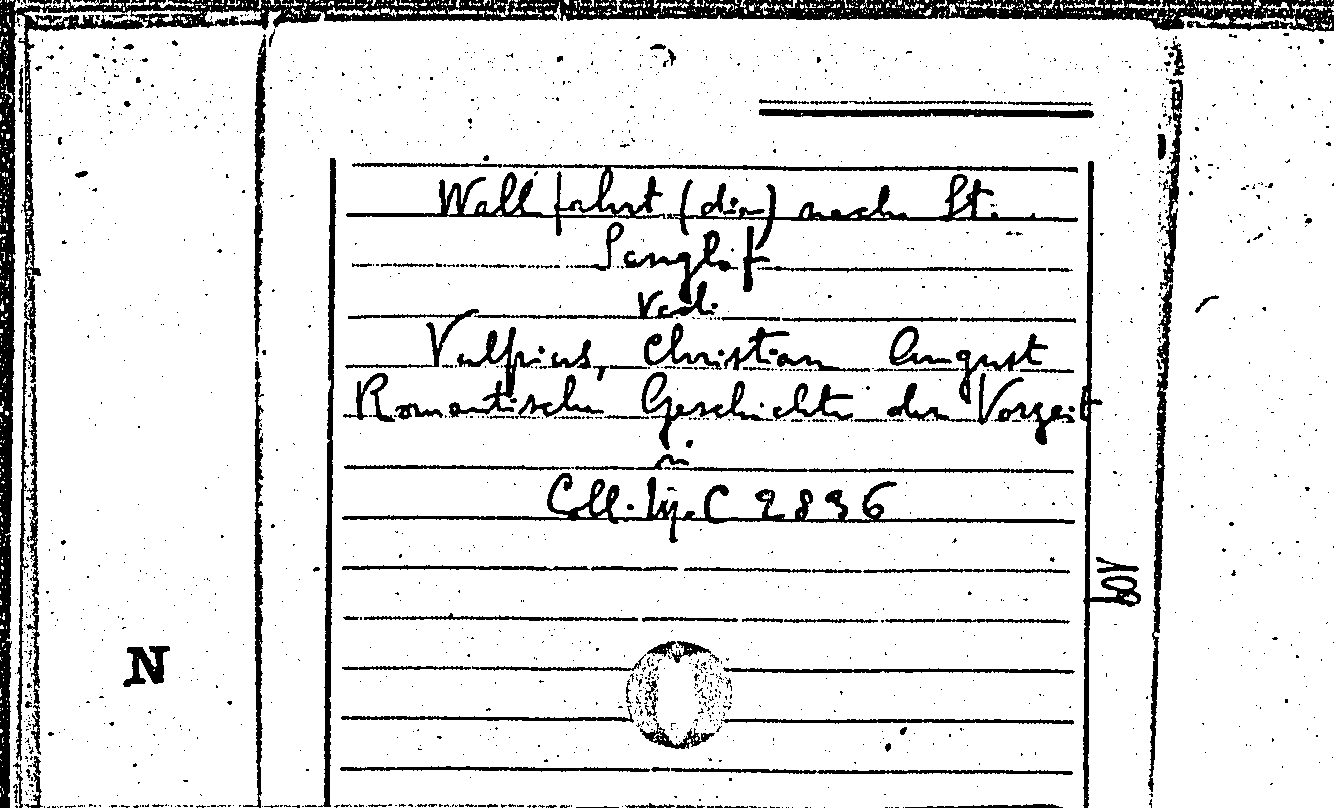 Wallfahrt (die) nach St.
Sanglof
Vedi
Vulpius, Christian August
Romantische Geschichte der Vorzeit
in
Coll. C 2836
N